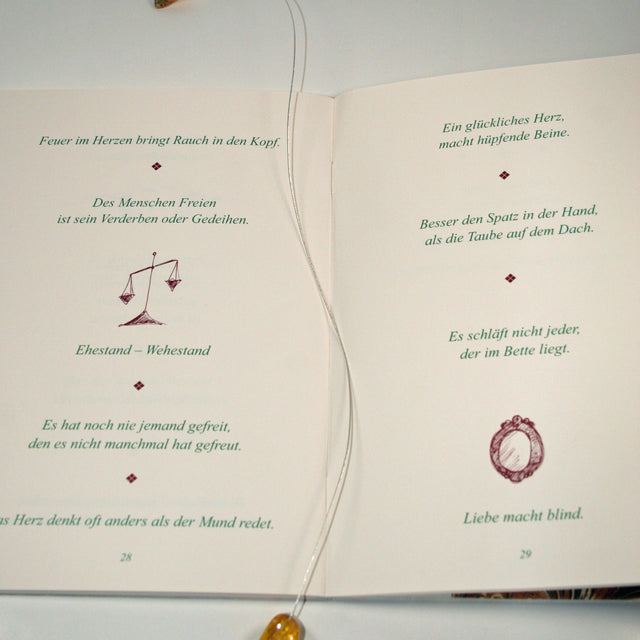 Feuer im Herzen bringt Rauch in den Kopf.
Des Menschen Freien
ist sein Verderben oder Gedeihen.
Ehestand – Wehestand
Es hat noch nie jemand gefreit,
den es nicht manchmal hat gefreut.
Herz denkt oft anders als der Mund redet.
28
Ein glückliches Herz,
macht hüpfende Beine.
Besser den Spatz in der Hand,
als die Taube auf dem Dach.
Es schläft nicht jeder,
der im Bette liegt.
Liebe macht blind.
29